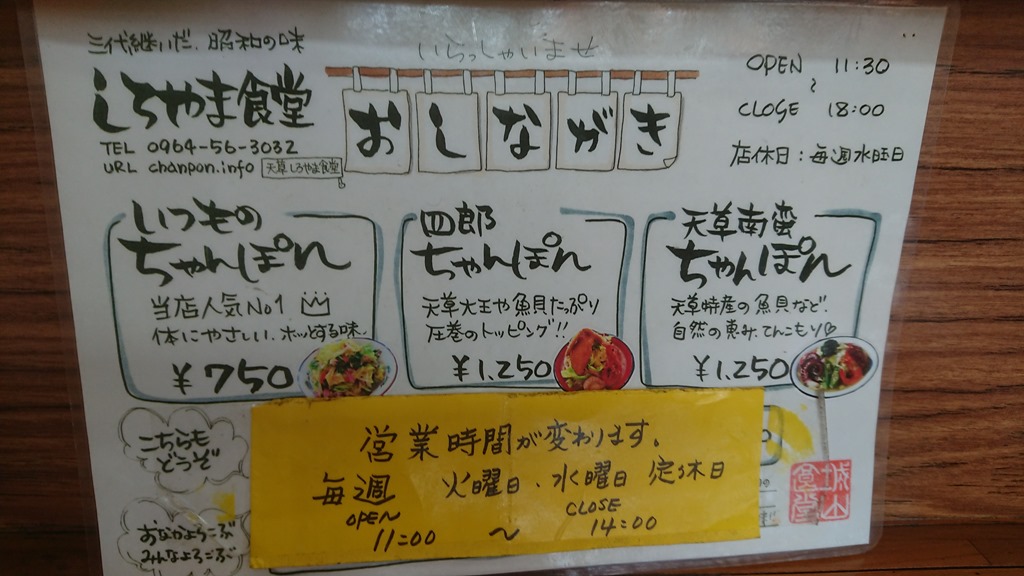 三代継いだ、昭和の味
いらっしゃいませ
しろやま食堂
おしながき
TEL 0964-56-3032
URL chanpon.info 天草しろやま食堂
OPEN 11:30
~
CLOSE 18:00
店休日:毎週水曜日
いつもの
ちゃんぽん
当店人気No1
体にやさしい、ホッとする味。
¥750
四郎
ちゃんぽん
天草大王や魚貝たっぷり
圧巻のトッピング!!
¥1,250
天草南蛮
ちゃんぽん
天草特産の魚貝など、
自然の恵みてんこもり♡
¥1,250
こちらも
どうぞ
おなかよろこぶ
みんなよろこぶ
営業時間が変わります。
毎週 火曜日、水曜日 定休日
OPEN CLOSE
11:00 ~ 14:00
城山
食堂